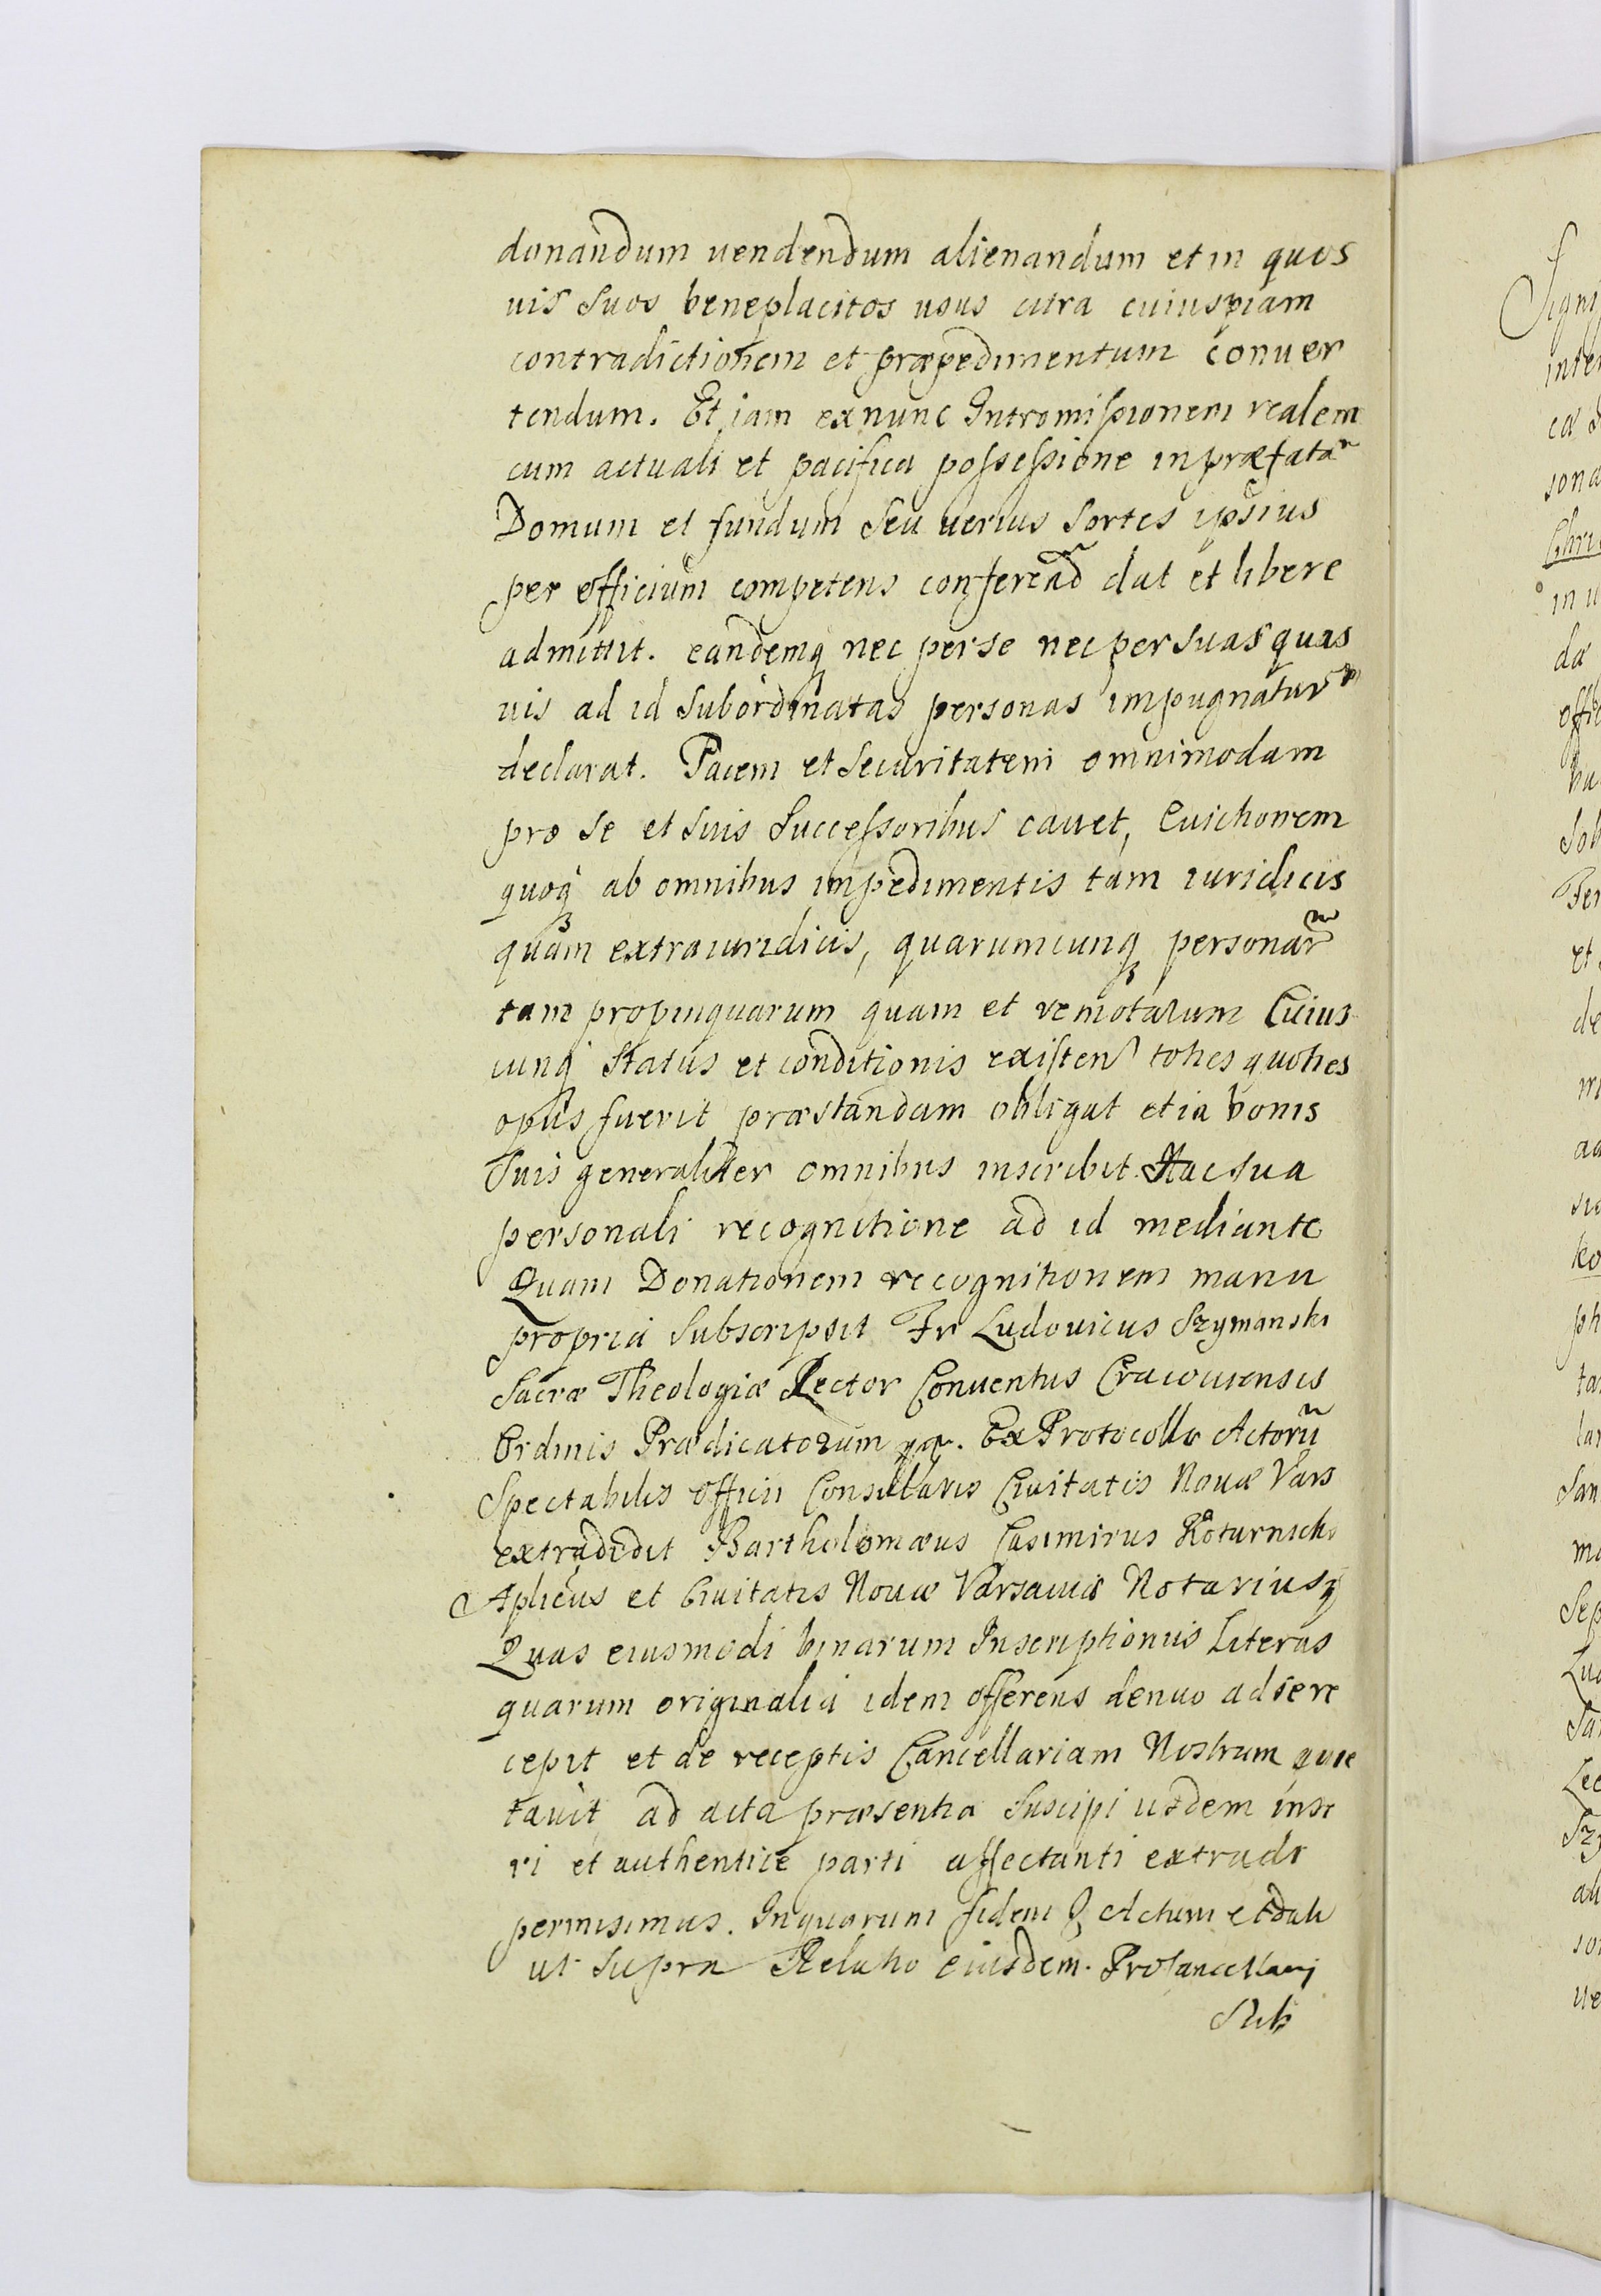 donandum uendendum alienandum et in quos
uis suos beneplacitos usus citra cuiuspiam
contradictionem et præpedimentum conuer
tendum. Et iam exnunc Intromissionem realem
cum actuali et pacifica possessione in præfatã
Domum et fundum seu uerius sortes ipsius
per officium competens conferend̃ dat et libere
admittit. eandemq nec per se nec per suas quas
uis ad id subordinatas personas impugnatur
declarat. Pacem et securitatem omnimodam
pro se et suis successoribus cauet, Euictionem
quoq ab omnibus impedimentis tam iuridicis
quam extraiuridicis, quarumcunq personar̃
tam propinquarum quam et remotarum Cuius
cunq status et conditionis existen toties quoties
opus fuerit præstandam obligat et in bonis
suis generaliter omnibus inscribit Hac sua
personali recognitione ad id mediante
Quam Donationem recognitionem manu
propria subscripsit Fr Ludouicus Szymanski
Sacræ Theologiæ Lector Conuentus Cracouiensis
Ordinis Prædicatorum Ex Protocollo Actorũ
Spectabilis officii Consularis Ciuitatis Nouæ Vars
extradidit Bartholomæus Casimirus Koturnicki
Aplicus et Ciuitatis Nouæ Varsauiæ Notarius
Quas eiusmodi binarum Inscriptionis Literas
quarum originalia idem offerens denuo ad se re
cepit et de receptis Cancellariam Nostram quie
tauit ad acta præsentia suscipi iisdem inse
ri et authentice parti affectanti extradi
permisimus. In quarum fidem Actum et dat
ut supra Relatio eiusdem. Procancellarij